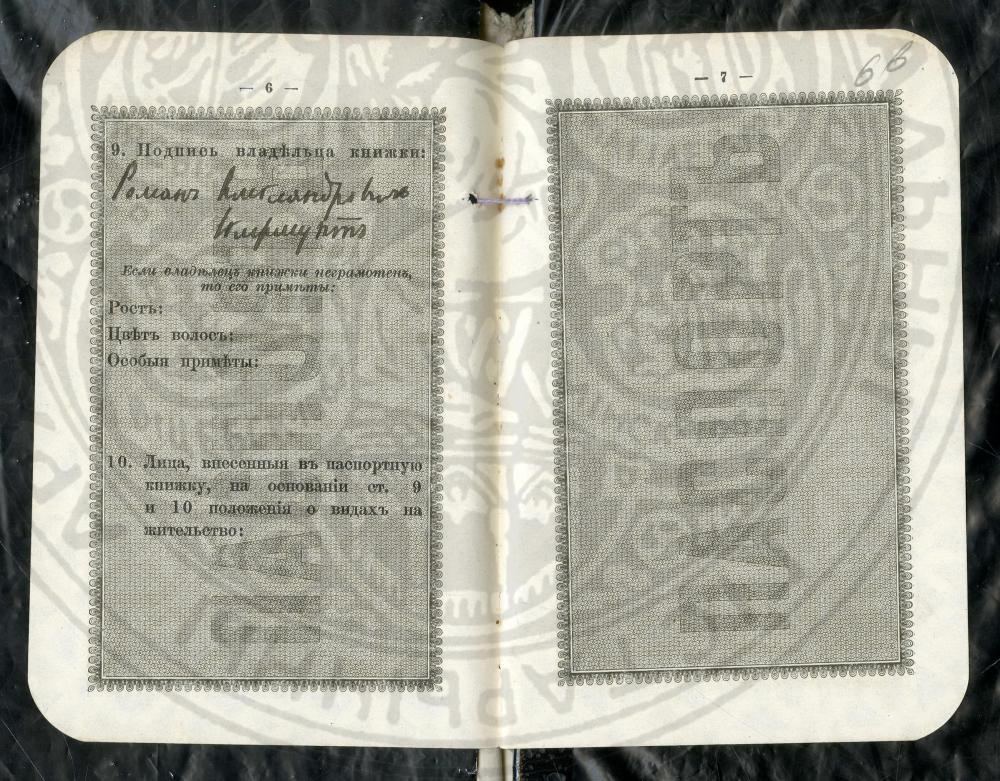 — 6 —
9. Подпись владѣльца книжки:
Романъ Александровичъ
Скирмунтъ
Если владѣлецъ книжки неграмотенъ,
то его примѣты:
Ростъ:
Цвѣтъ волосъ:
Особыя примѣты:
10. Лица, внесенныя въ паспортную
книжку, на основаніи ст. 9
и 10 положенія о видахъ на
жительство:
— 7 —
66
ПАСПОРТЪ